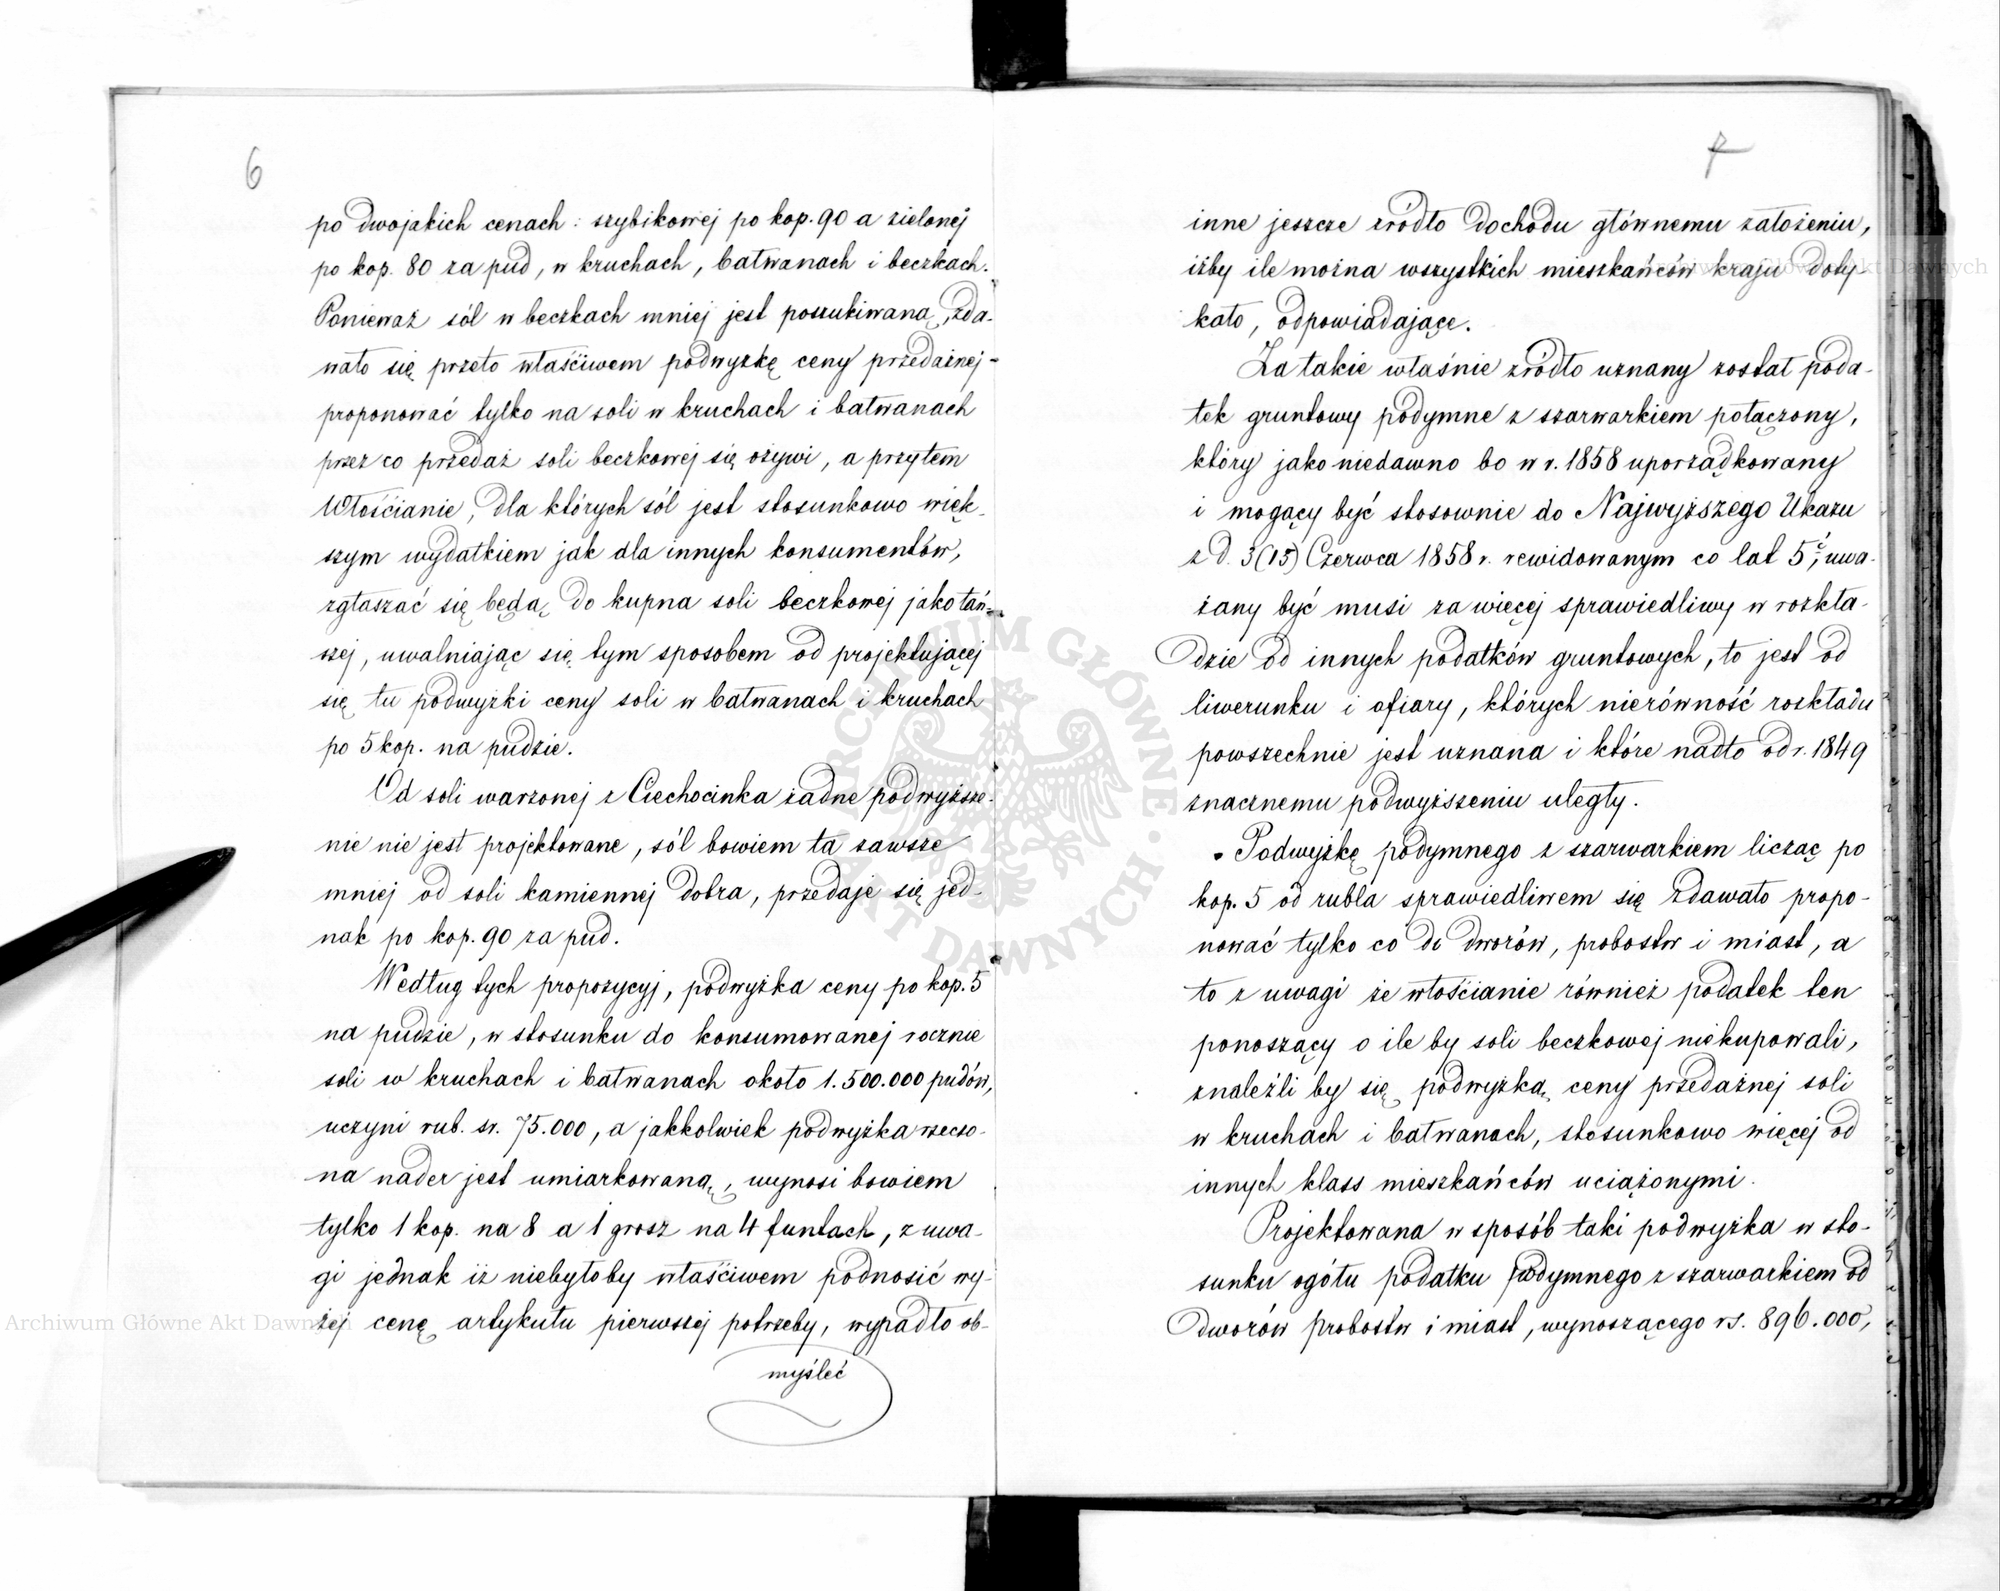 6
po dwojakich cenach: szybikowej po kop. 90 a zielonej
po kop. 80 za pud, w kruchach, bałwanach i beczkach.
Ponieważ sól w beczkach mniej jest poszukiwaną, zda-
wało się przeto właściwem podwyżkę ceny przedażnej
proponować tylko na soli w kruchach i bałwanach
przez co przedaż soli beczkowej się ożywi, a przytem
Włościanie, dla których sól jest stosunkowo więk-
szym wydatkiem jak dla innych konsumentów,
zgłaszać się będą do kupna soli beczkowej jako tań-
szej, uwalniając się tym sposobem od projektującej
się tu podwyżki ceny soli w bałwanach i kruchach
po 5 kop. na pudzie.
Od soli warzonej z Ciechocinka żadne podwyższe-
nie nie jest projektowane, sól bowiem ta zawsze
mniej od soli kamiennej dobra, przedaje się jed-
nak po kop. 90 za pud.
Według tych propozycyj, podwyżka ceny po kop. 5
na pudzie, w stosunku do konsumowanej rocznie
soli w kruchach i bałwanach około 1.500.000 pudów,
uczyni rub. sr. 75.000, a jakkolwiek podwyżka rzeczo-
na nader jest umiarkowaną, wynosi bowiem
tylko 1 kop. na 8 a 1 grosz na 4 funtach, z uwa-
gi jednak iż niebyłoby właściwem podnosić wy-
żej cenę artykułu pierwszej potrzeby, wypadło ob-
myśleć
7
inne jeszcze źródło dochodu głównemu założeniu,
iżby ile można wszystkich mieszkańców kraju doty-
kało, odpowiadające.
Za takie właśnie źródło uznany został poda-
tek gruntowy podymne z szarwarkiem połączony,
który jako niedawno bo w r. 1858 uporządkowany
i mogący być stosownie do Najwyższego Ukazu
z d. 3(15) Czerwca 1858 r. rewidowanym co lat 5ć, uwa-
żany być musi za więcej sprawiedliwy w rozkła-
dzie od innych podatków gruntowych, to jest od
liwerunku i ofiary, których nierówność rozkładu
powszechnie jest uznana i które nadto od r. 1849
znacznemu podwyższeniu uległy.
Podwyżkę podymnego z szarwarkiem licząc po
kop. 5 od rubla sprawiedliwem się zdawało propo-
nować tylko co do dworów, probostw i miast, a
to z uwagi że włościanie również podatek ten
ponoszący o ile by soli beczkowej niekupowali,
znaleźli by się podwyżką ceny przedażnej soli
w kruchach i bałwanach, stosunkowo więcej od
innych klass mieszkańców uciążonymi.
Projektowana w sposób taki podwyżka w sto-
sunku ogółu podatku podymnego z szarwarkiem od
dworów probostw i miast, wynoszącego rs. 896.000,
Archiwum Główne Akt Dawnych
Archiwum Główne Akt Dawnych
ARCHIWUM GŁÓWNE AKT DAWNYCH